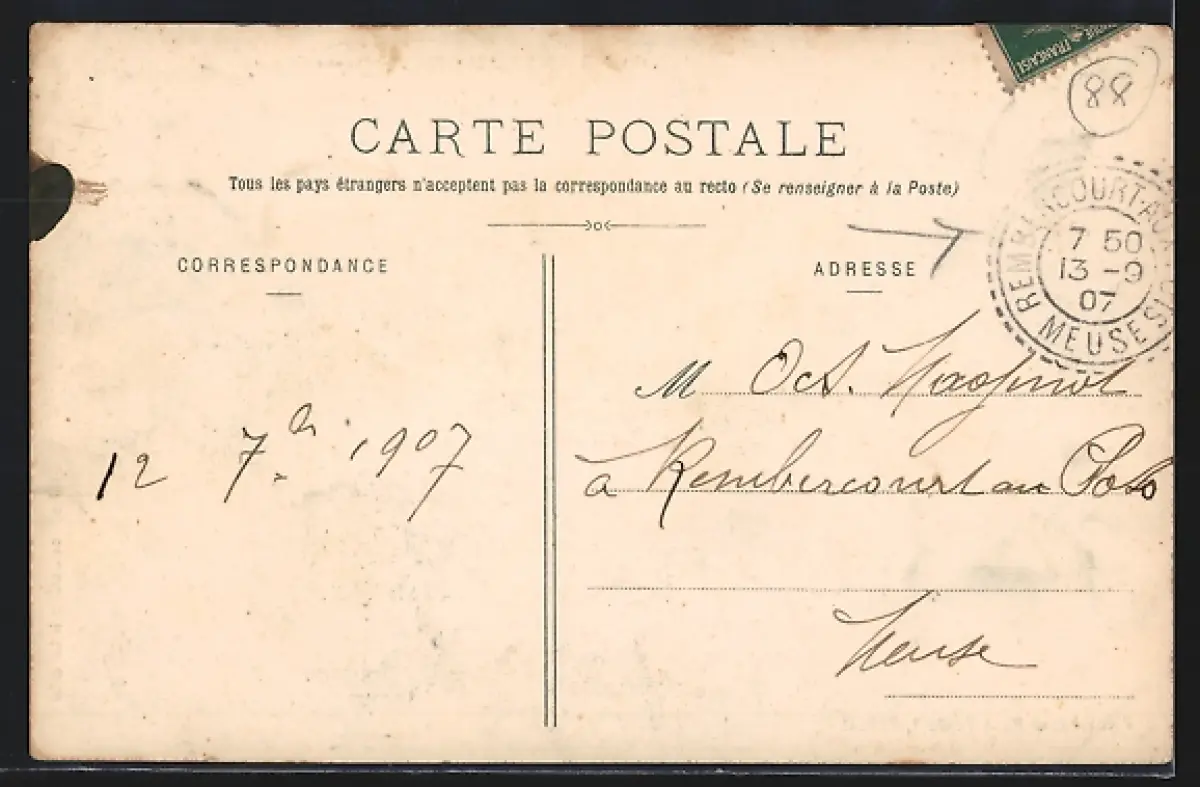 RÉPUBLIQUE FRANÇAISE
88
CARTE POSTALE
Tous les pays étrangers n'acceptent pas la correspondance au recto (Se renseigner à la Poste)
CORRESPONDANCE
ADRESSE
REMBERCOURT-AUX
7 50
13 - 9
07
MEUSE
M Oct. Maginot
12 7.bre 1907
à Rembercourt au Pots
Meuse